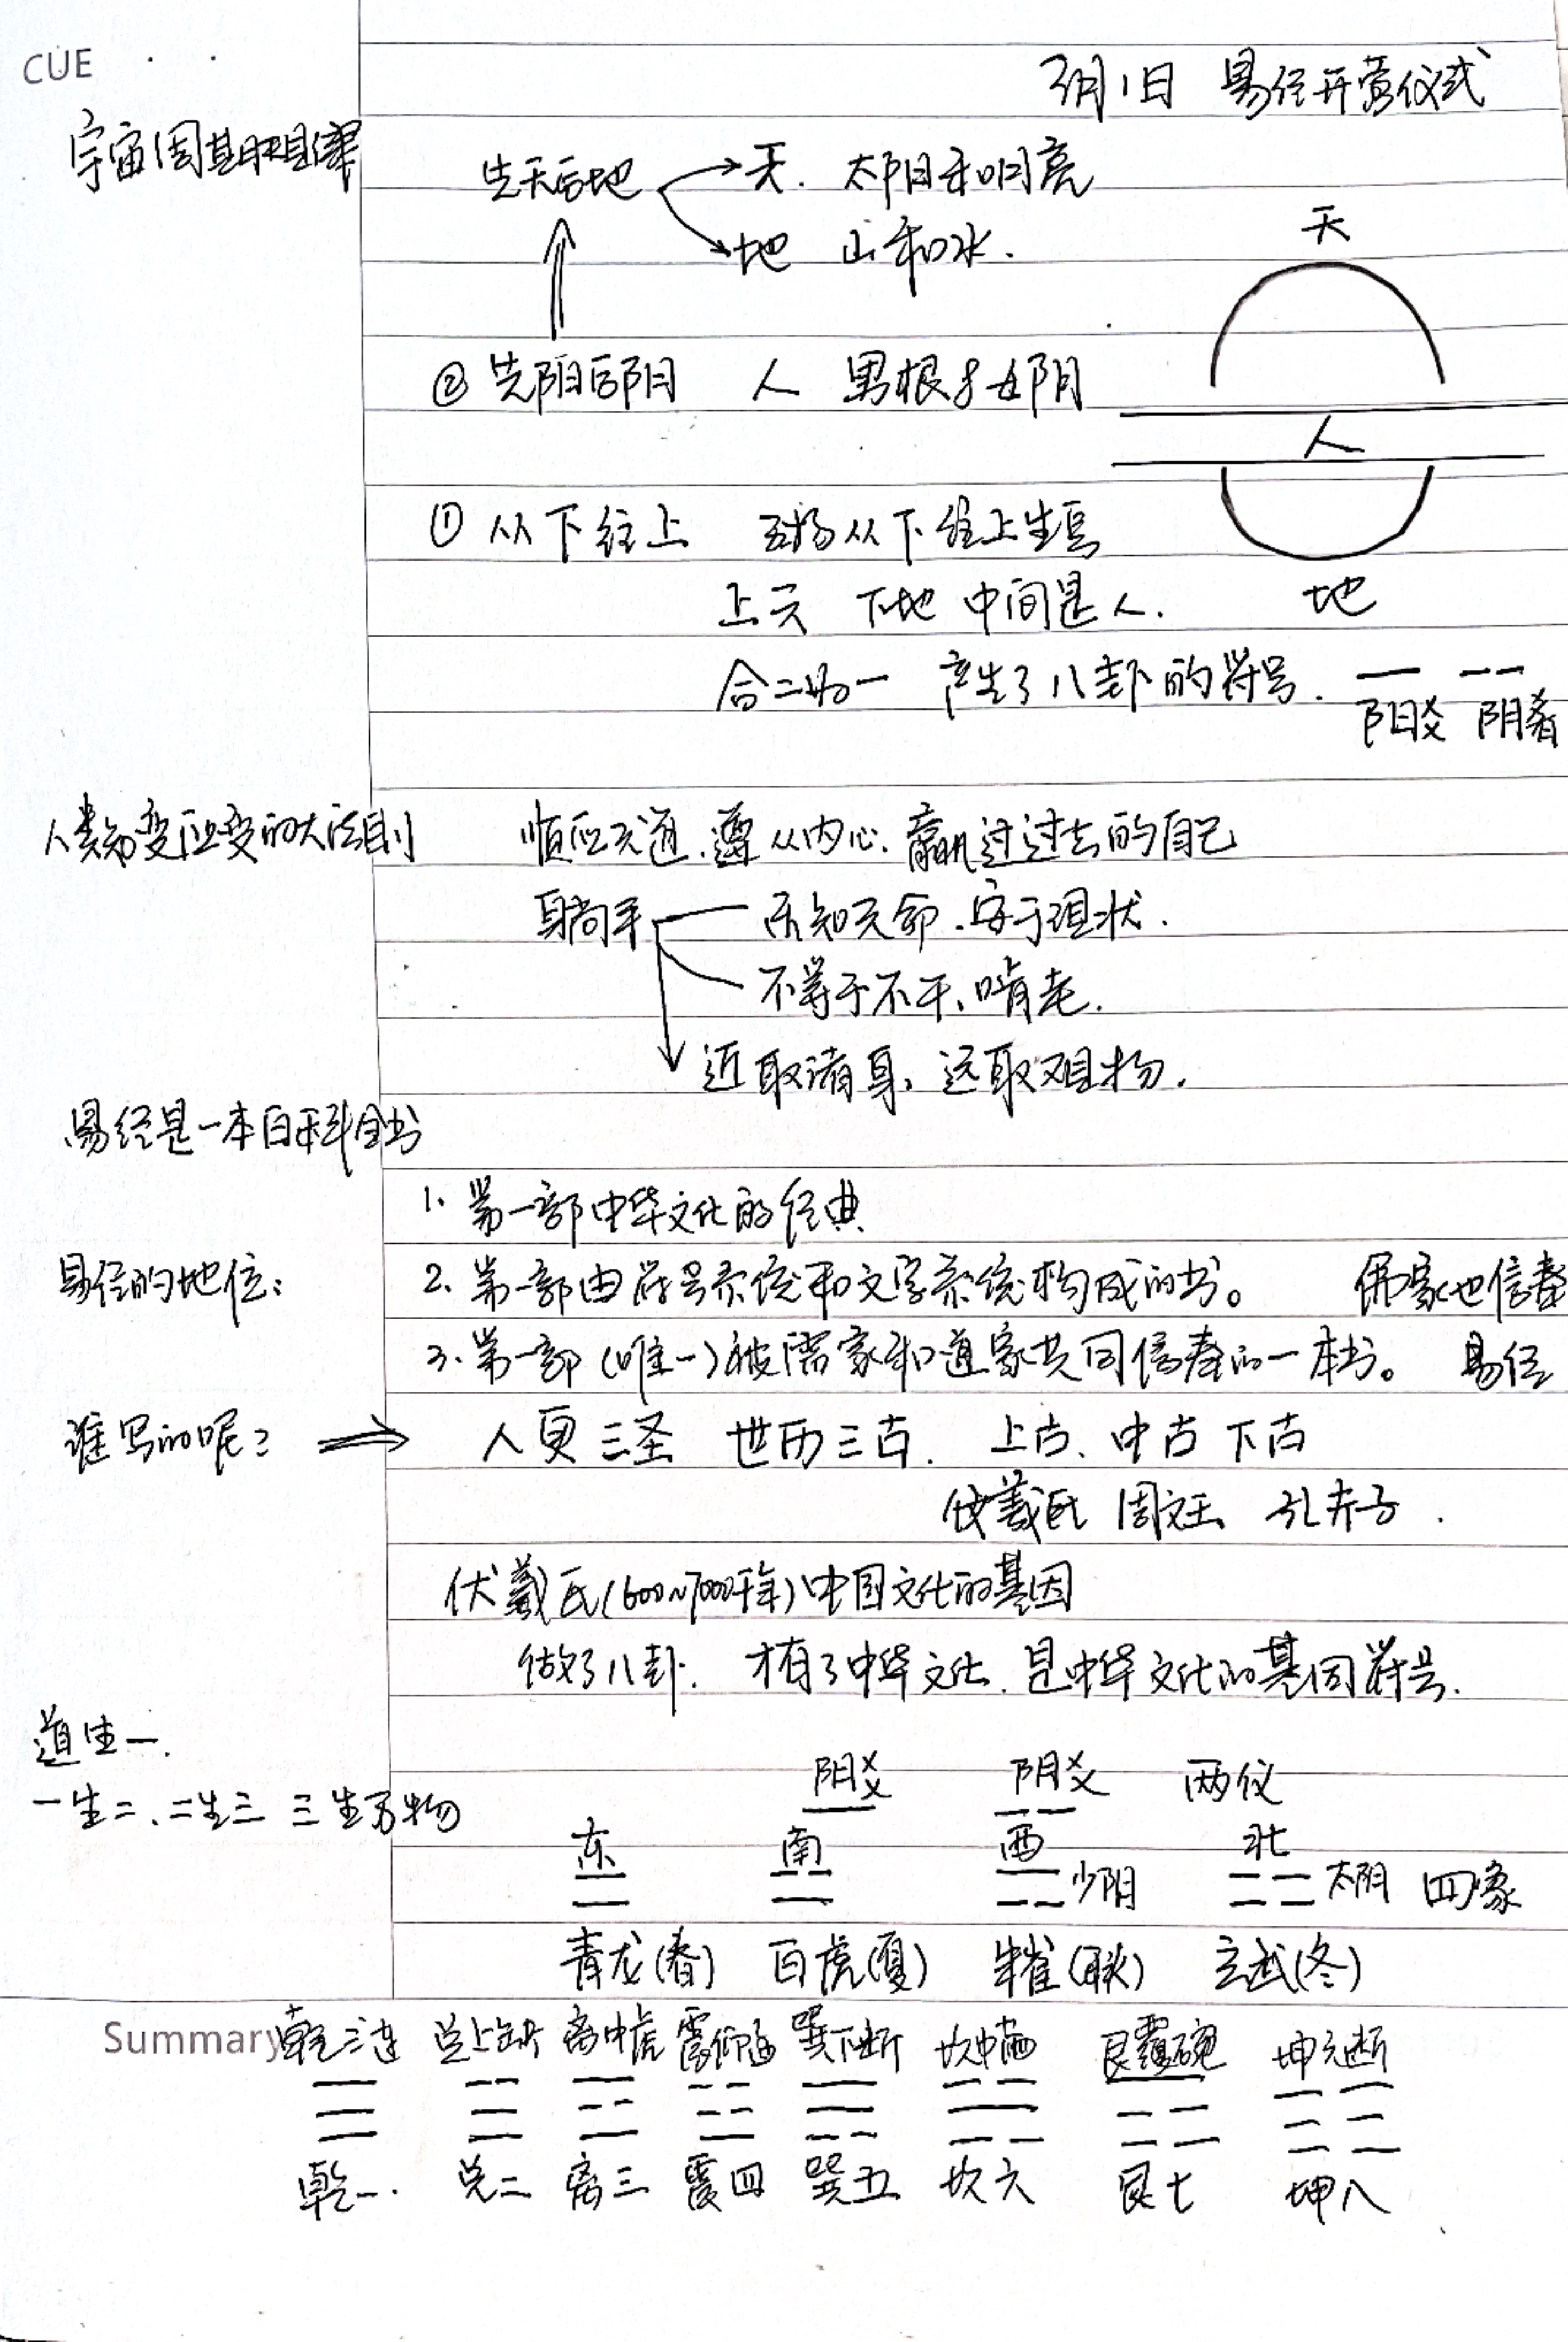 CUE
3月1日 易经开营仪式
宇宙周期规律
先天后地 天. 太阳和明亮
地 山和水.
天
② 先阳后阴 人 男根 女阴
人
① 从下往上 万物从下往上生长
上天 下地 中间是人.
地
合二为一 产生了八卦的符号.
阳爻 阴爻
人类知变应变的大法则 顺应天道.遵从内心.赢过过去的自己
躺平 乐知天命.安于现状.
不等于不干、啃老.
近取诸身、远取诸物.
易经是一本百科全书
1. 第一部中华文化的经典
易经的地位: 2. 第一部由符号系统和文字系统构成的书。 儒家也信奉
3. 第一部(唯一)被儒家和道家共同信奉的一本书。 易经
谁写的呢? 人更三圣 世历三古. 上古、中古 下古
伏羲氏 周文王 孔夫子.
伏羲氏(600~7000千年)中国文化的基因
做了八卦. 才有了中华文化.是中华文化的基因符号.
道生一.
阳爻 阴爻 两仪
一生二、二生三 三生万物
东 南 西 北
少阴 太阴 四象
青龙(春) 白虎(夏) 朱雀(秋) 玄武(冬)
Summary 乾三连 兑上缺 离中虚 震仰盂 巽下断 坎中满 艮覆碗 坤六断
乾一. 兑二 离三 震四 巽五 坎六 艮七 坤八